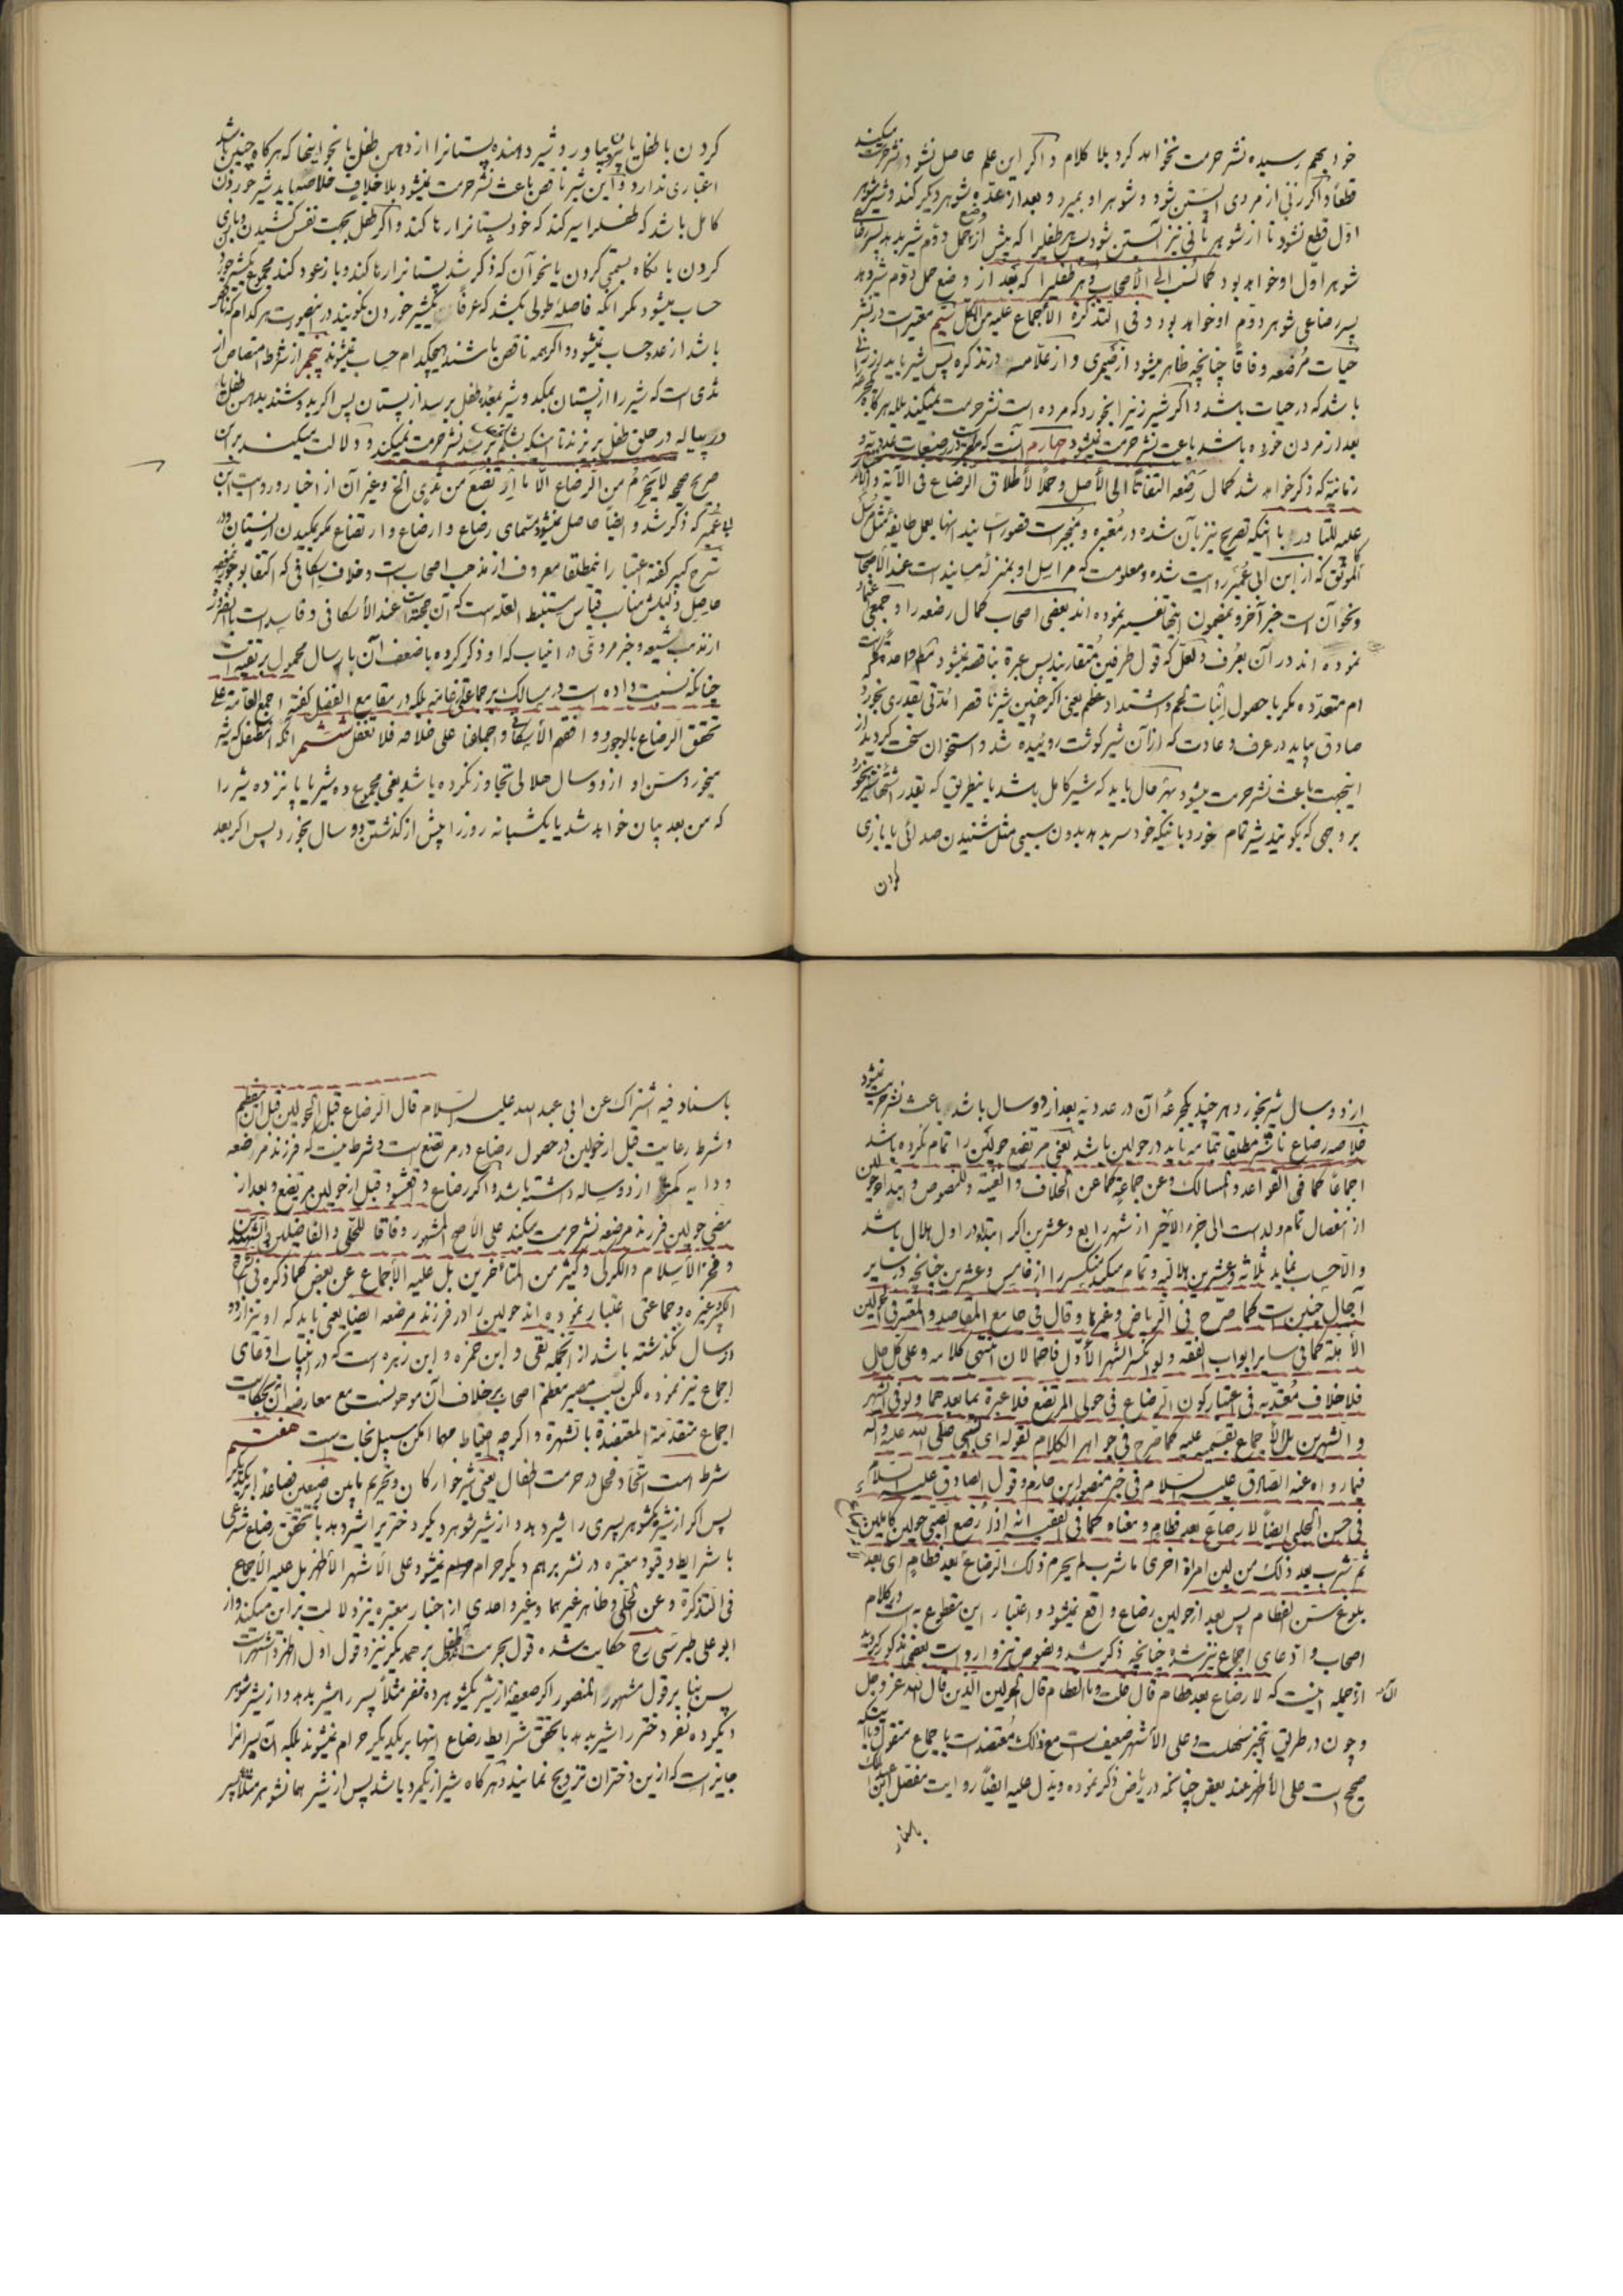 خود بهم رسیده نشر حرمت نخواهد کرد بلا کلام و اکر این علم حاصل نشود نشر حرمت میکند
قطعاً و اکر زنی از مردی آبستن شود و شوهر او بمیرد و بعد از عدّه شوهر دیکر کند و شیر شوهر
اوّل قطع نشود تا از شوهر ثانی نیز آبستن شود پس هر طفلیرا که پیش از وضع حمل دوّم شیر بدهد پسر رضاعی
شوهر اوّل او خواهد بود کما نسب الی الأصحاب و هر طفلیرا که بعد از وضع حمل دوّم شیر دهد
پسر رضاعی شوهر دوّم او خواهد بود و فی التذکرة الأجماع علیه من الکل سیّم معتبر است در نشر
حیات مرضعه وفاقاً چنانچه ظاهر میشود از صیمری و از علّامه در تذکره پس شیر باید از زنی
باشد که در حیات باشد و اکر شیر زنیرا بخورد که مرده است نشر حرمت نمیکند بلکه هر کاه یکجرعه
بعد از مردن خورده باشد باعث نشر حرمت نمیشود چهارم آنست که در رضعات عددیّه و
زمانیّه که ذکر خواهد شد کمال رضعه التفاتاً الی الأصل و حملاً لأطلاق الرضاع فی الآیة و
علیه للتبادر با اینکه تصریح نیز بآن شده در معتبره و منجبر است قصور سانید آنها بعمل طایفه مثل مرسل
کالموثق که از ابن ابی عمیر روایت شده و معلومست که مراسیل او بمنزله مسانید است عند الأصحاب
و نحو آن است خبر آخر و بمضمون اینها تفسیر نموده اند بعضی اصحاب کمال رضعه را و جمعی
نموده اند در آن بعرف و لعلّ که قول طرفین متقاربند پس عبرة بناقصه نمیشود
ام متعدّده مکر با حصول انبات لحم و اشتداد عظم یعنی اکر چنین شیر ناقص را مدّتی بقدری بخورد
صادق بیاید در عرف و عادت که از آن شیر کوشت روئیده شد و استخوان سخت کردید
اینجهت باعث نشر حرمت میشود بهر حال باید که شیر کامل باشد باینطریق که بقدر اشتها شیر بخورد
بر وجهی که بکویند شیر تمام خورد باینکه خود سر بدهد بدون سببی مثل شنیدن صدائی یا بازی
کردن
کردن با طفل یا نحو بیاورد و شیر دهنده پستانرا از دهن طفل یا نحو اینها که هر کاه چنین باشد
اعتباری ندارد و این شیر ناقص باعث نشر حرمت نمیشود بلا خلاف خلاصه باید شیر خوردن
کامل باشد که طفل را سیر کند که خود پستانرا رها کند و اکر طفل بجهت نفس کشیدن و بازی
کردن یا نکاه بسمتی کردن یا نحو آن که ذکر شد پستانرا رها کند و باز عود کند مجموع یکشیر خوردن
حساب میشود مکر آنکه فاصله طولی بکشد که عرفاً یکشیر خوردن نکویند در اینصورت هر کدام که ناقص
باشد از عدد حساب نمیشود و اکر همه ناقص باشند هیچکدام حساب نمیشوند پنجم از شروط امتصاص از
ثدی است که شیر را از پستان بمکد و شیر بمعده طفل برسد از پستان پس اکر بدوشند بدهن طفل یا
در پیاله در حلق طفل بریزند تا اینکه بشکمش برسد نشر حرمت نمیکند و دلالت میکند بر این
صریح صحیحه لا یحرم من الرضاع الّا ما ارتضع من ثدی الخ و غیر آن از اخبار و روایت ابن
ابی عمیر که ذکر شد و ایضاً حاصل نمیشود مسمای رضاع و ارضاع و ارتضاع مکر بمکیدن از پستان و در
شرح کبیر کفته اعتبار را نمطلقا معروف از مذهب اصحاب است و خلاف اسکافی که اکتفا بوجور
حاصل و دلیلش مناسب قیاس مستنبط العله است که آن حجّة است عند الأسکافی و فاسد است بالضرورة
از مذهب شیعه و خبر مروی در اینباب که او ذکر کرده با ضعف آن بارسال محمول بر تقیه است
چنانکه نسبت داده است در مسالک بر جماعتی عامّه بلکه در مقامع الفضل کفته اجمع العامّة علی
تحقق الرضاع بالوجور و وافقهم الأسکافی و اجماعنا علی خلافه فلا تغفل ششم آنکه آنطفل که شیر
میخورد سن او از دو سال هلالی تجاوز نکرده باشد یعنی مجموع ده شیر یا پانزده شیر را
که من بعد بیان خواهد شد یا یکشبانه روز را پیش از کذشتن دو سال بخورد پس اکر بعد
از دو سال شیر بخورد هر چند یکجرعه آن در عددیّه بعد از دو سال باشد باعث نشر حرمت نمیشود
خلاصه رضاع ناشر مطلقا تمامه باید در حولین باشد یعنی مرتضع حولین را تمام نکرده باشد
اجماعاً کما فی القواعد و المسالک و عن جماعة کما عن الخلاف و الغنیة و للنصوص و ابتداء حولین
از انفصال تمام ولد است الی جزء الأخیر از شهر رابع و عشرین اکر ابتداء در اول هلال باشد
و الّا حساب نماید ثلاثه و عشرین هلالیه و تمام میکند منکسر را از خامس و عشرین چنانچه در سایر
آجال چنین است کما صرّح فی الریاض و غیرها و قال فی جامع المقاصد و المعتبر فی الحولین
الأهلّة کما فی سایر ابواب الفقه و لو انکسر الشهر الأوّل فاحتمالان انتهی کلامه و علی کل حال
فلا خلاف معتدّ به فی اعتبار کون الرضاع فی حولی المرتضع فلا عبرة بما بعدهما و لو فی الشهر
و الشهرین بل الأجماع بقسمیه علیه کما صرّح فی جواهر الکلام لقوله ای النبی صلی الله علیه و آله
فیما رواه عنه الصادق علیه السلام فی خبر منصور ابن حازم و قول الصادق علیه السلام
فی حسن الحلبی ایضاً لا رضاع بعد فطام و معناه کما فی الفقیه انه اذا رضع الصبی حولین کاملین
ثم شرب بعد ذلک من لبن امرأة اخری ما شرب لم یحرم ذلک الرضاع بعد فطام ای بعد
بلوغ سن الفطام پس بعد از حولین رضاع واقع نمیشود و اعتبار این مقطوع به است در کلام
اصحاب و ادّعای اجماع نیز شده چنانچه ذکر شد و نصوص نیز وارد است بعضی مذکور کردید
از جمله اینست که لا رضاع بعد فطام قال قلت و ما الفطام قال الحولین الذین قال الله عز و جل
و چون در طریق اینخبر سهلست و علی الأشهر ضعیف است مع ذلک معتضد است باجماع منقول
صحیح است علی الأظهر عند بعض چنانچه در ریاض ذکر نموده و یدل علیه ایضاً روایت مفضل ابن
باسناد
باسناد فیه اشتراک عن ابی عبد الله علیه السلام قال الرضاع قبل الحولین قبل ان یفطم
و شرط رعایت قبل از حولین در حصول رضاع در مرتضع است و شرط نیست که فرزند مرضعه
و دایه کمتر از دو ساله داشته باشد و اکر رضاع قبل از حولین مرتضع و بعد از
مضی حولین فرزند مرضعه نشر حرمت میکند علی الأصح المشهور وفاقاً للحلی و الفاضلین و الشهیدین
و فخر الأسلام و الکرکی و کثیر من المتأخرین بل علیه الأجماع عن بعض کما ذکره فی شرح
الکبیر و غیره و جماعتی اعتبار نموده اند حولین را در فرزند مرضعه ایضا یعنی باید که او نیز از دو
سال نکذشته باشد از آنجمله تقی و ابن حمزه و ابن زهره است که در اینباب ادّعای
اجماع نیز نموده لکن بسبب مصیر معظم اصحاب بر خلاف آن موهونست مع معارضه آن بحکایت
اجماع متقدّمة المعتضدة بالشهرة و اکر چه احتیاط مهما امکن سبیل نجات است هفتم
شرط است اتّحاد فحل در حرمت اطفال یعنی شیر خوارکان و تحریم مابین رضیعین فصاعداً بر یکدیکر
پس اکر از شیر یکشوهر پسری را شیر دهد و از شیر شوهر دیکر دختریرا شیر دهد با تحقّق رضاع شرعی
با شرایط و قیود معتبره در نشر بر هم دیکر حرام نمیشود علی الأشهر الأظهر بل علیه الأجماع
فی التذکرة و عن الحلّی و ظاهر غیرهما و غیر واحدی از اخبار معتبره نیز دلالت بر این میکند و از
ابو علی طبرسی ره حکایت شده قول بحرمت طفل بر همدیکر نیز و قول اوّل اظهر و اشهر است
پس بنا بر قول مشهور المنصور اکر ضعیفه از شیر یکشوهر ده نفر مثلاً پسر را شیر بدهد و از شیر شوهر
دیکر ده نفر دختر را شیر بدهد با تحقّق شرایط رضاع اینها بر یکدیکر حرام نمیشوند بلکه آن پسرانرا
جایز است که از این دختران تزویج نمایند و هر کاه شیر از یکمرد باشد پس از شیر همان شوهر مثلاً پسر